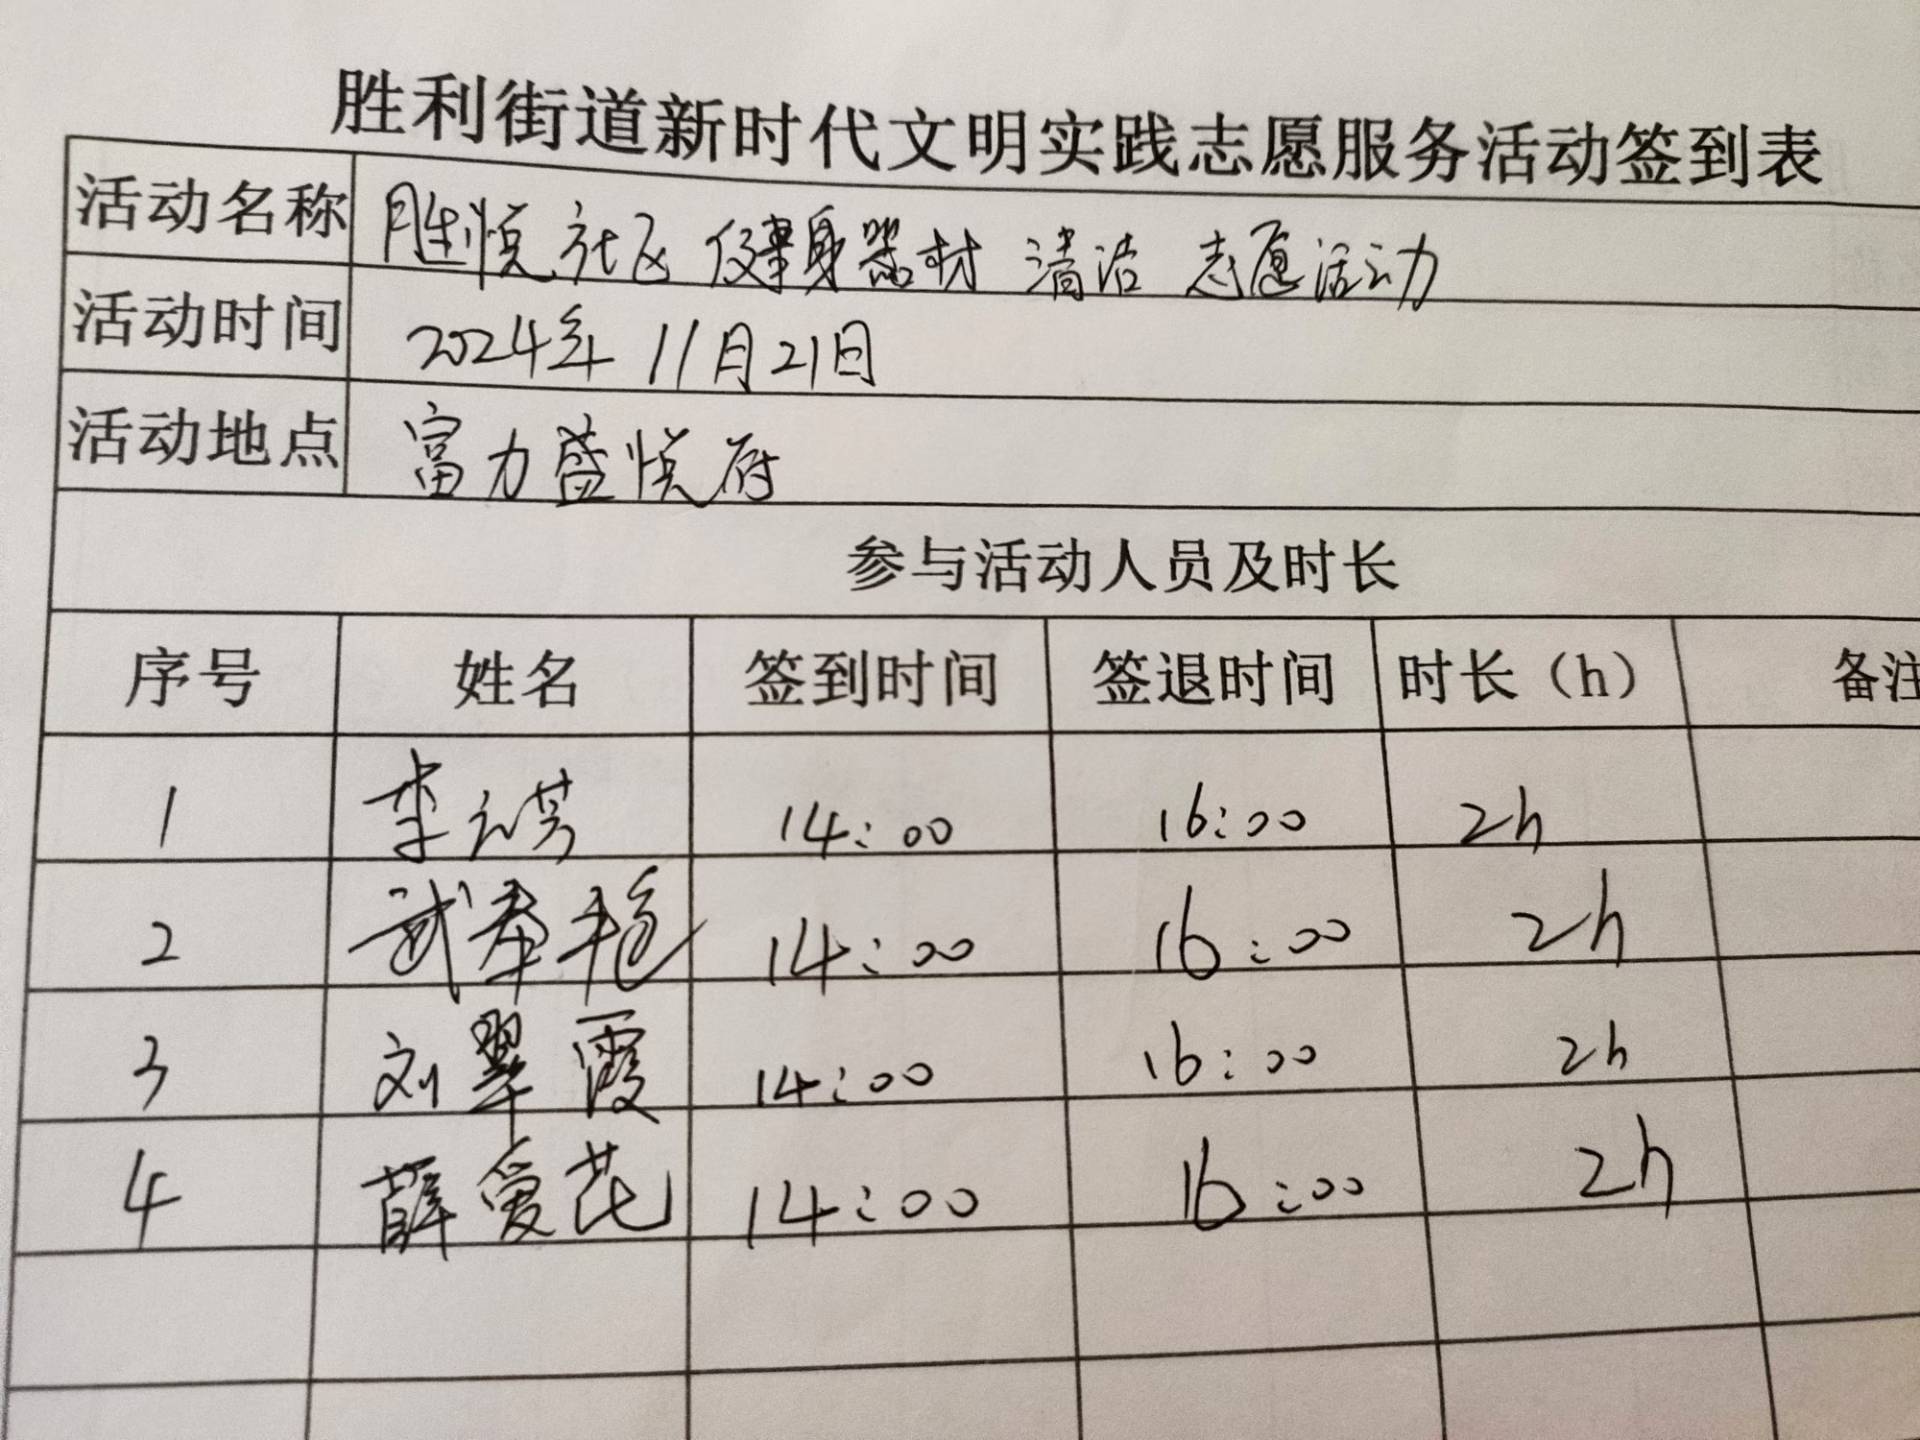 胜利街道新时代文明实践志愿服务活动签到表
活动名称 胜悦社区健身器材清洁志愿活动
活动时间 2024年11月21日
活动地点 富力盛悦府
参与活动人员及时长
序号 姓名 签到时间 签退时间 时长（h） 备注
1 李 芳 14:00 16:00 2h
2 武春艳 14:00 16:00 2h
3 刘翠霞 14:00 16:00 2h
4 薛爱花 14:00 16:00 2h